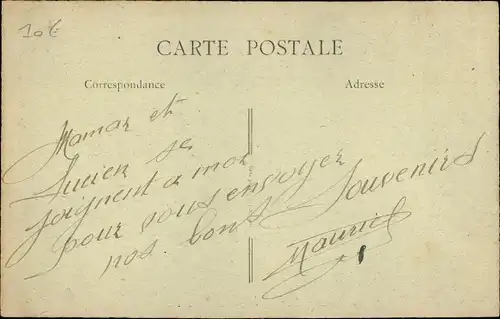 10€
CARTE POSTALE
Correspondance
Adresse
Maman et
Lucien se
joignent a moi
pour vous envoyer
nos bons Souvenirs
Maurice